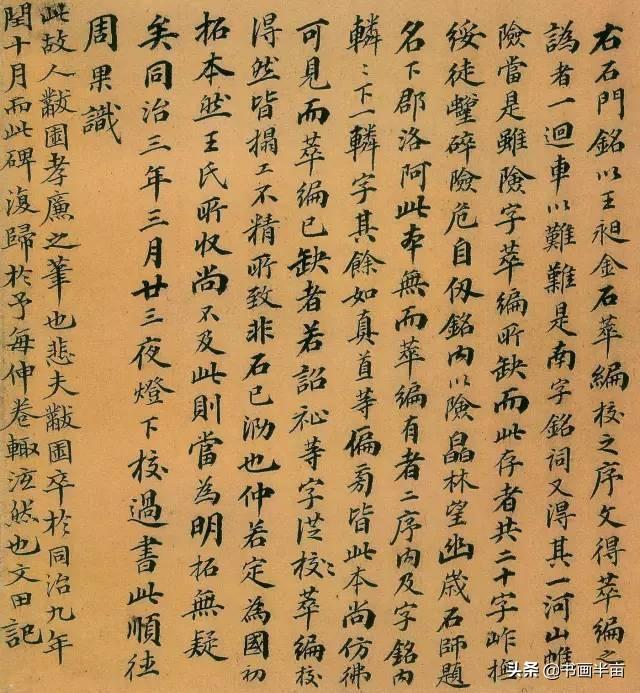 右石門銘以王昶金石萃編校之序文得萃編之
譌者一迴車以難難是南字銘詞又得其一河山雖
險當是雖險字萃編所缺而此存者共二十字岞
綏徒躄碎險危自仭銘內以險晶林望幽歲石師題
名下郡洛阿此本無而萃編有者二序內及字銘內
轔〻下一轔字其餘如真首等偏旁皆此本尚仿彿
可見而萃編已缺者若詔祉等字洪校〻萃編校
得然皆搨工不精所致非石已泐也仲若定為國初
拓本然王氏所収尚不及此則當為明拓無疑
矣同治三年三月廿三夜燈下校過書此順德
周果識
此故人黻園孝廉之筆也悲夫黻園卒於同治九年
閏十月而此碑復歸於予每伸卷輒泫然也文田記
头条 @书画半亩